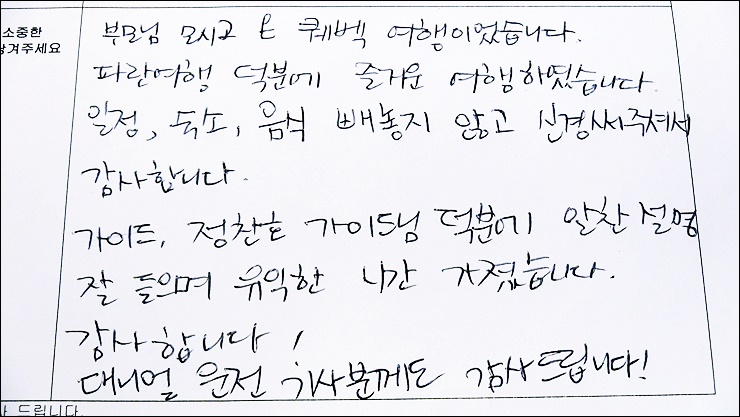 소중한
남겨주세요
부모님 모시고 온 퀘벡 여행이었습니다.
파란여행 덕분에 즐거운 여행하였습니다.
일정, 숙소, 음식 빼놓지 않고 신경써주셔서
감사합니다.
가이드, 정찬호 가이드님 덕분에 알찬 설명
잘 들으며 유익한 시간 가졌습니다.
감사합니다!
대니얼 운전 기사분께도 감사드립니다!
사 드립니다.